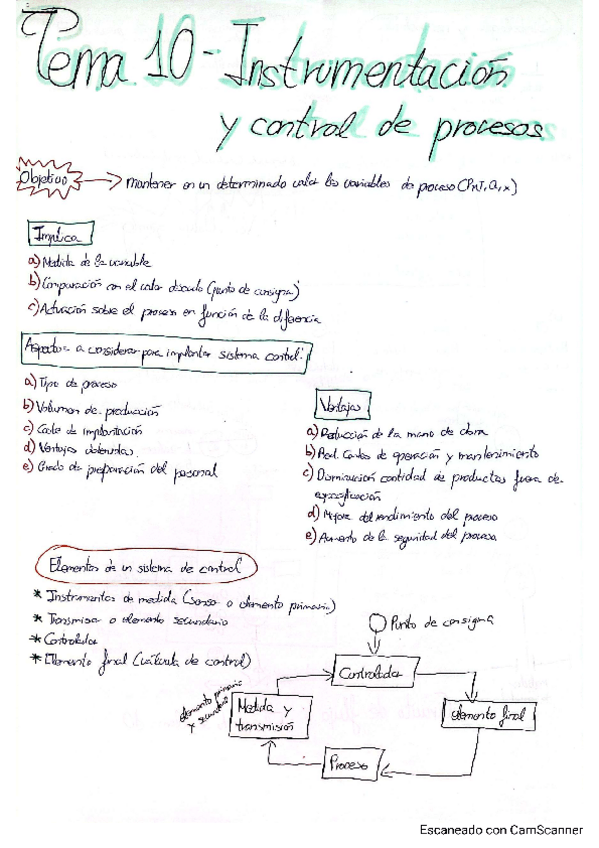 Tema 10 - Instrumentación
y control de procesos
Objetivo → mantener en un determinado valor las variables de proceso (P, T, Q, x)
Implica
a) Medida de la variable
b) Comparación con el valor deseado (punto de consigna)
c) Actuación sobre el proceso en función de la diferencia
Aspectos a considerar para implantar sistema control:
a) Tipo de proceso
b) Volumen de producción
c) Coste de implantación
d) Ventajas obtenidas
e) Grado de preparación del personal
Ventajas
a) Reducción de la mano de obra
b) Red. Costes de operación y mantenimiento
c) Disminución cantidad de productos fuera de
especificación
d) Mejora del rendimiento del proceso
e) Aumento de la seguridad del proceso
Elementos de un sistema de control
* Instrumentos de medida (sensor o elemento primario)
* Transmisor o elemento secundario
* Controlador
* Elemento final (válvula de control)
Punto de consigna
Controlador
elemento primario
y secundario
Medida y
transmisión
elemento final
Proceso
Escaneado con CamScanner